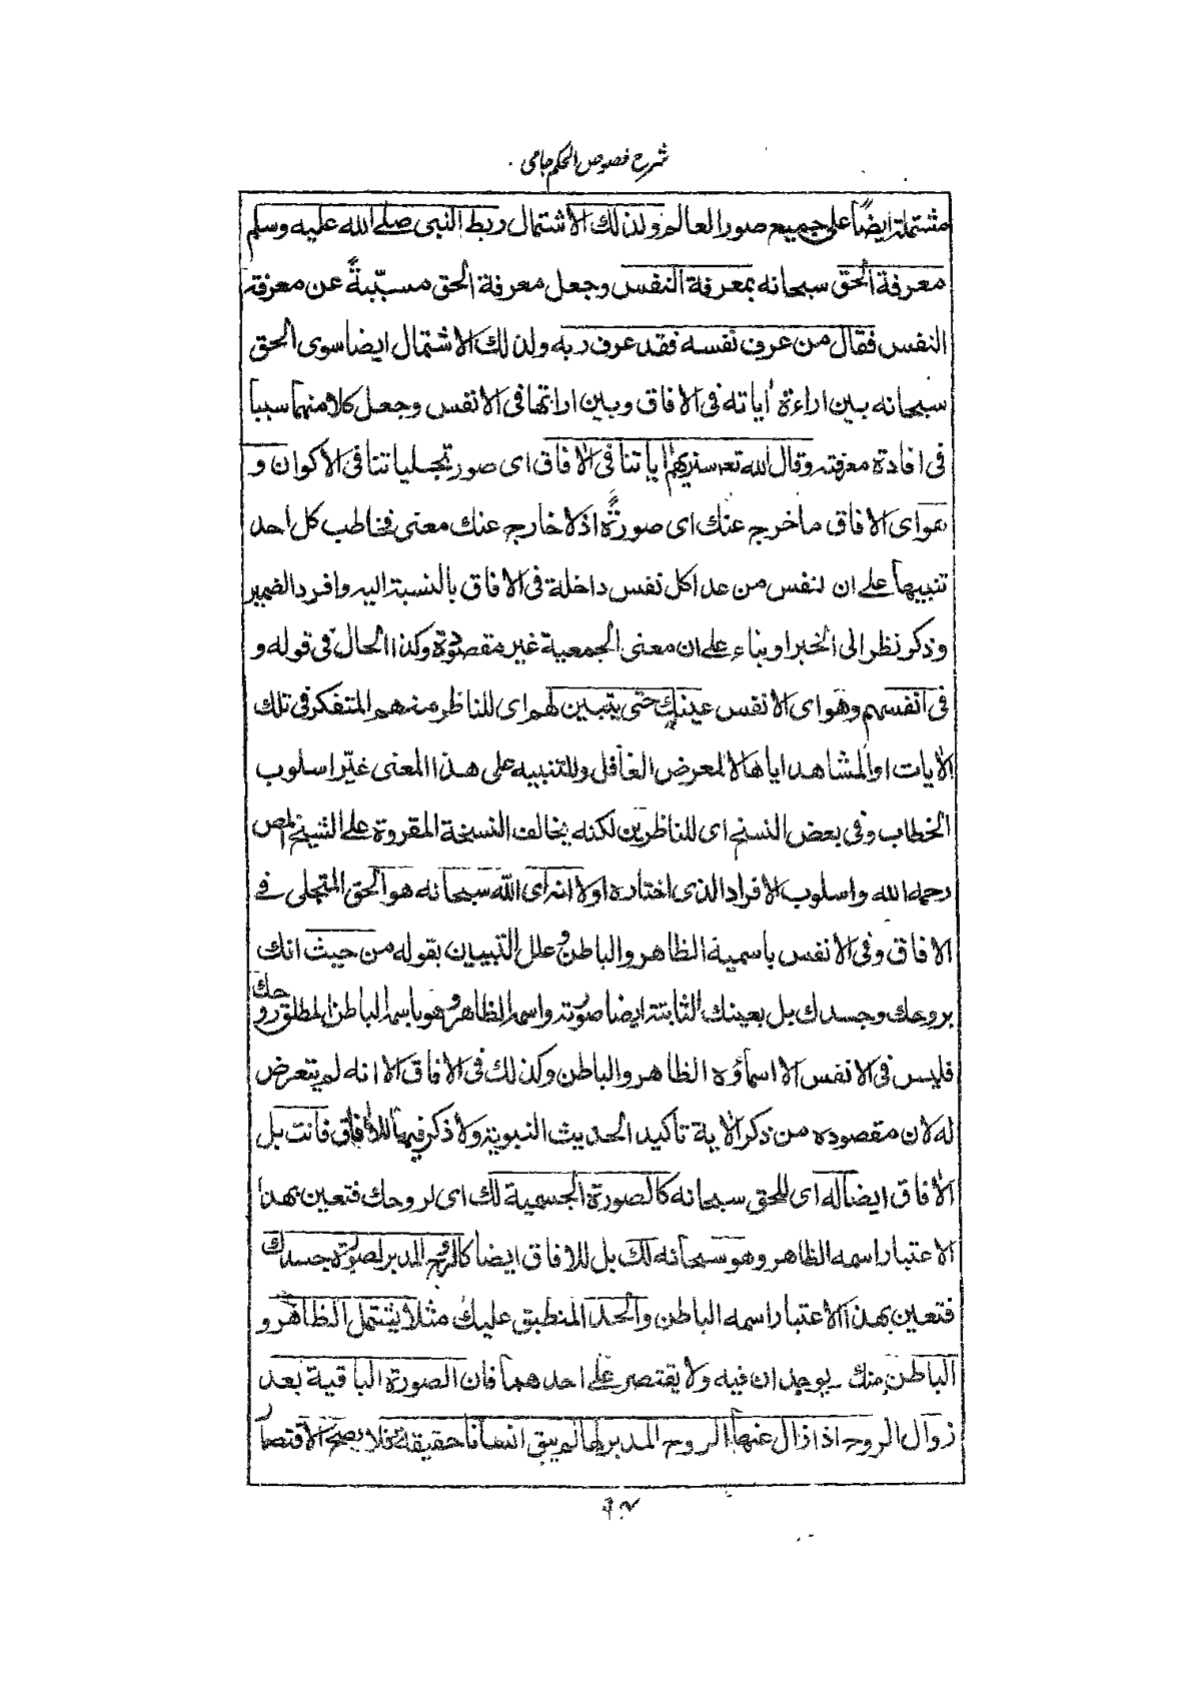 شرح فصوص الحکم جامی
مشتملة ايضاً على جميع صور العالم ولذلك الاشتمال ربط النبى صلى الله عليه وسلم
معرفة الحق سبحانه بمعرفة النفس وجعل معرفة الحق مسبّبةً عن معرفة
النفس فقال من عرف نفسه فقد عرف ربه ولذلك الاشتمال ايضا سوى الحق
سبحانه بين اراءة أياته فى الافاق وبين اراتها فى الانفس وجعل كلا منهما سببا
فى افادة معرفته وقال الله تعه سنريهم اياتنا فى الافاق اى صور تجلياتنا فى الاكوان و
هو اى الافاق ما خرج عنك اى صورةً اذ لا خارج عنك معنى فخاطب كل احد
تنبيها على ان لنفس من عدا كل نفس داخلة فى الافاق بالنسبة اليه وافرد الضمير
وذكر نظرا الى الخبر او بناء على ان معنى الجمعية غير مقصودة وكذا الحال فى قوله و
فى انفسهم وهو اى الانفس عينك حتى يتبين لهم اى للناظر منهم المتفكر فى تلك
الأيات او المشاهد اياها لا المعرض الغافل وللتنبيه على هذا المعنى غيّر اسلوب
الخطاب وفى بعض النسخ اى للناظرين لكنه يخالف النسخة المقروة على الشيخ المص
رحمه الله واسلوب الافراد الذى اختاره اولا انه اى الله سبحانه هو الحق المتجلى فى
الافاق وفى الانفس باسميه الظاهر والباطن و علل التبيين بقوله من حيث انك
بروحك وجسدك بل بعينك الثابتة ايضا صورته واسمه الظاهر و هو باسمه الباطن المطلق روحك
فليس فى الانفس الا اسماؤه الظاهر والباطن وكذلك فى الافاق الا انه لم يتعرض
له لان مقصوده من ذكر الأية تاكيد الحديث النبوية ولا ذكر فيها للأفاق فانت بل
الأفاق ايضا له اى للحق سبحانه كالصورة الجسمية لك اى لروحك فتعين بهذا
الاعتبار اسمه الظاهر وهو سبحانه لك بل للافاق ايضا كالروح المدبر لصورة جسدك
فتعين بهذا الاعتبار اسمه الباطن والحد المنطبق عليك مثلا يشتمل الظاهر و
الباطن منك يوجدان فيه ولا يقتصر على احدهما فان الصورة الباقية بعد
زوال الروح اذا زال عنها الروح المدبر لها لم يبق انسانا حقيقة فلا يصح الاقتصار